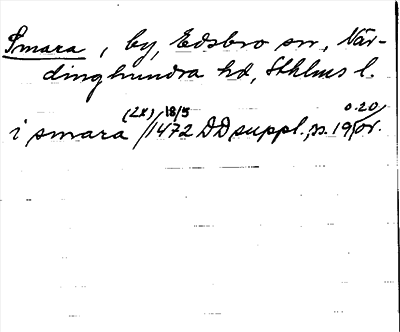 Smara, by, Edsbro sn, När-
dinghundra hd, Sthlms l.
(2x) 18/5 0.20
i smara /1472 DD suppl., s. 19, or.